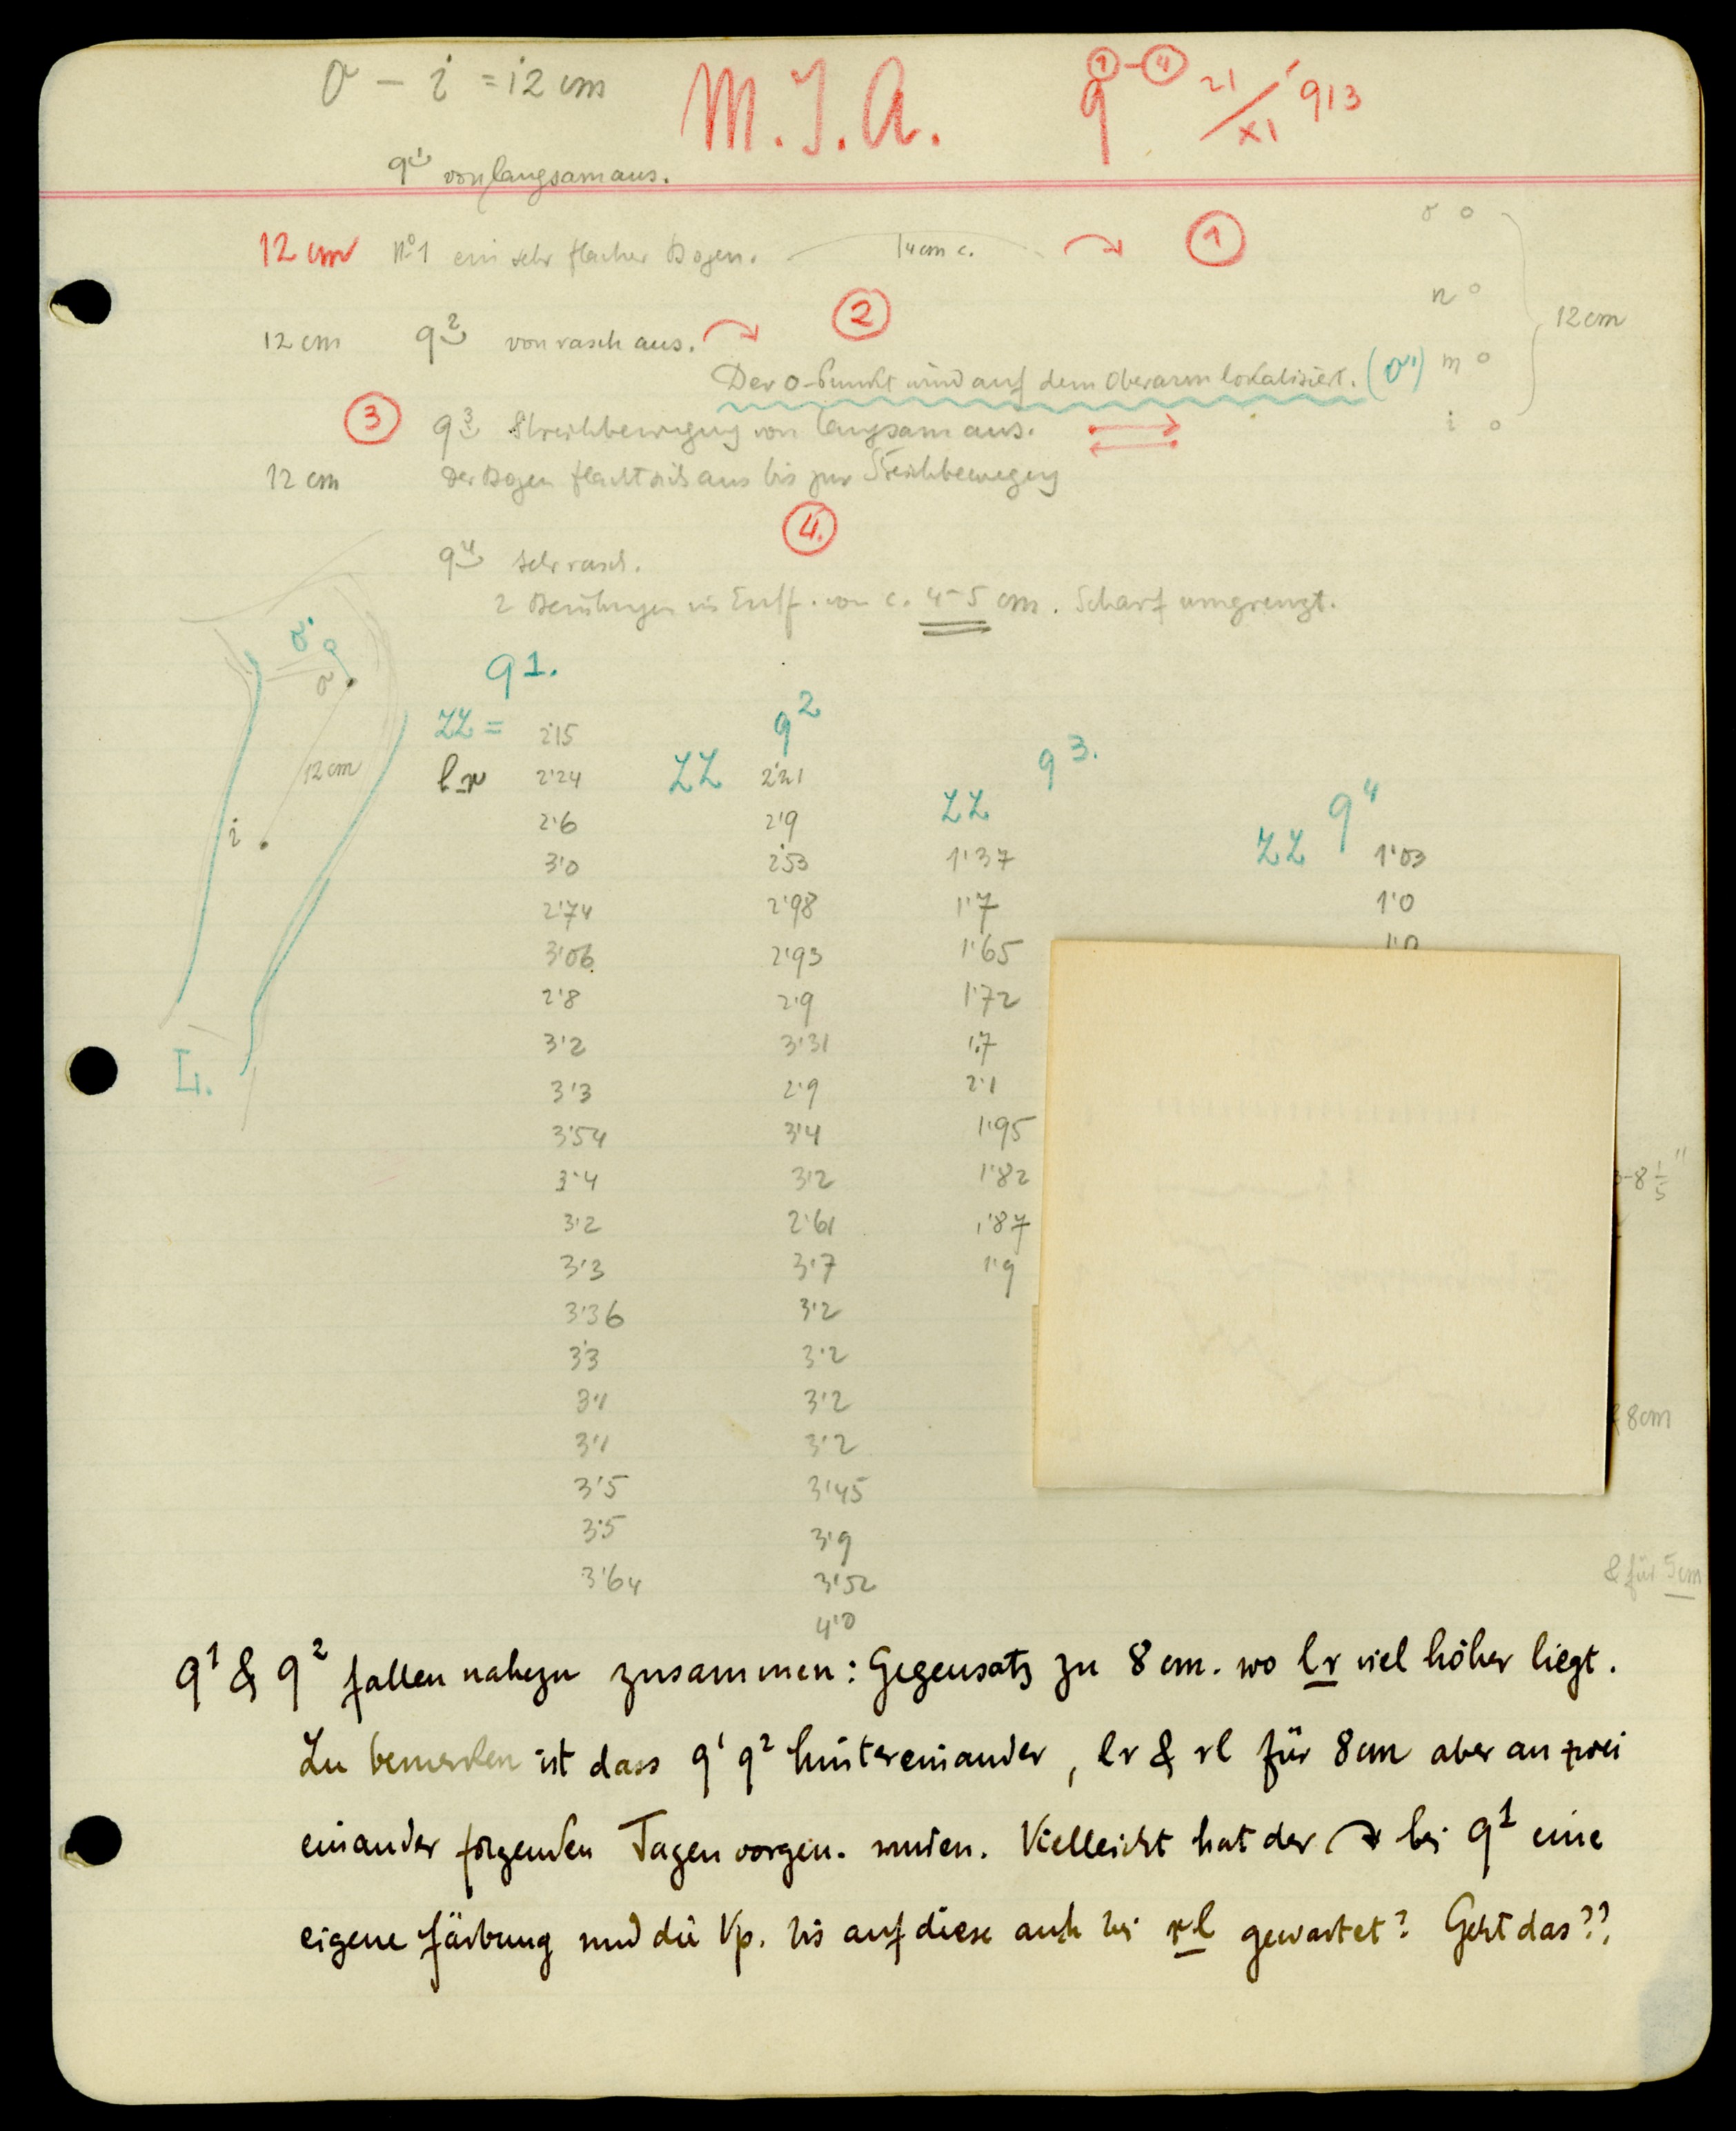 o - i = 12 cm M. J. A. q ①-④ 21/XI 913
q1 von langsam aus.
12 cm No1 ein sehr flacher Bogen. 14 cm c. ①
o
n
12 cm
m
i
12 cm q2 von rasch aus. ②
Der o-Punkt wird auf dem Oberarm lokalisiert. (o')
③ q3 Streichbewegung von langsam aus.
12 cm Der Bogen flacht sich aus bis zur Streichbewegung
④.
q4 sehr rasch.
2 Berührungen in Entf. von c. 4-5 cm. Scharf umgrenzt.
o'
o
12 cm
i
L.
q1.
ZZ =
l r
2'15
2'24
2'6
3'0
2'74
3'06
2'8
3'2
3'3
3'54
3'4
3'2
3'3
3'36
3'3
3'1
3'1
3'5
3'5
3'64
q2
ZZ
2'21
2'9
2'53
2'98
2'93
2'9
3'31
2'9
3'4
3'2
2'61
3'7
3'2
3'2
3'2
3'2
3'45
3'9
3'52
4'0
q3.
ZZ
1'37
1'7
1'65
1'72
1'7
2'1
1'95
1'82
1'87
1'9
q4
ZZ
1'03
1'0
1'0
-8 1/5"
8cm
& für 5cm
q1 & q2 fallen nahezu zusammen: Gegensatz zu 8 cm. wo lr viel höher liegt.
Zu bemerken ist dass q1 q2 hintereinander, lr & rl für 8cm aber an zwei
einander folgenden Tagen vorgen. wurden. Vielleicht hat der ↷ bei q1 eine
eigene Färbung und die Vp. bis auf diese auch bei rl gewartet? Geht das??